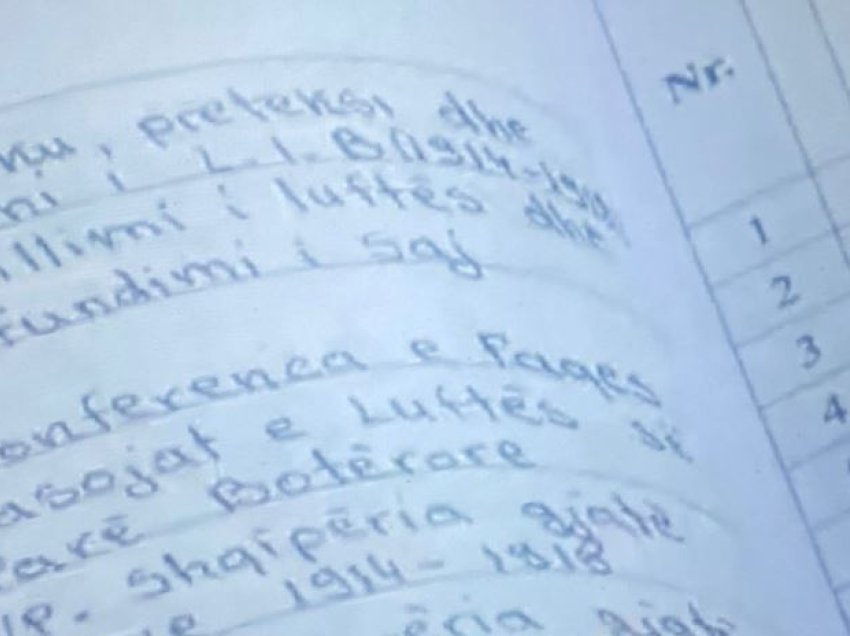 ku, preteksi dhe
ni i L.I.B(1914-1918
illimi i luftës dhe
fundimi i saj
onferenca e Pages
asojat e Luftës së
arë Botërore
P. Shqipëria gjatë
e 1914-1918
ëria gjat
Nr.
1
2
3
4